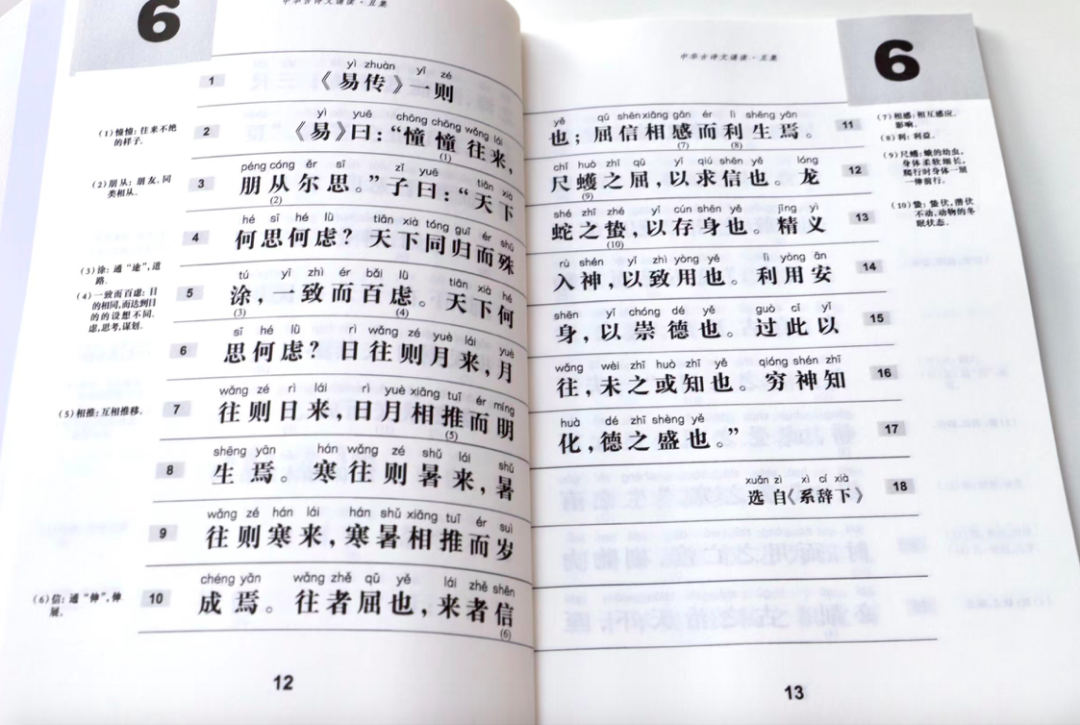 6
中华古诗文诵读·丑集
yì zhuàn yī zé
1 《易传》一则
yì yuē chōng chōng wǎng lái
2 《易》曰：“憧憧往来，
(1)
péng cóng ěr sī zǐ yuē tiān xià
3 朋从尔思。”子曰：“天下
(2)
hé sī hé lǜ tiān xià tóng guī ér shū
4 何思何虑？天下同归而殊
tú yī zhì ér bǎi lǜ tiān xià hé
5 涂，一致而百虑。天下何
(3) (4)
sī hé lǜ rì wǎng zé yuè lái yuè
6 思何虑？日往则月来，月
wǎng zé rì lái rì yuè xiāng tuī ér míng
7 往则日来，日月相推而明
(5)
shēng yān hán wǎng zé shǔ lái shǔ
8 生焉。寒往则暑来，暑
wǎng zé hán lái hán shǔ xiāng tuī ér suì
9 往则寒来，寒暑相推而岁
chéng yān wǎng zhě qū yě lái zhě shēn
10 成焉。往者屈也，来者信
(6)
(1)憧憧：往来不绝
的样子。
(2)朋从：朋友、同
类相从。
(3)涂：通“途”，道
路。
(4)一致而百虑：目
的相同，而达到目
的的设想不同。
虑，思考，谋划。
(5)相推：互相推移。
(6)信：通“伸”，伸
展。
12
中华古诗文诵读·丑集
6
yě qū shēn xiāng gǎn ér lì shēng yān
也；屈信相感而利生焉。 11
(7) (8)
chǐ huò zhī qū yǐ qiú shēn yě lóng
尺蠖之屈，以求信也。龙 12
(9)
shé zhī zhé yǐ cún shēn yě jīng yì
蛇之蛰，以存身也。精义 13
(10)
rù shén yǐ zhì yòng yě lì yòng ān
入神，以致用也。利用安 14
shēn yǐ chóng dé yě guò cǐ yǐ
身，以崇德也。过此以 15
wǎng wèi zhī huò zhī yě qióng shén zhī
往，未之或知也。穷神知 16
huà dé zhī shèng yě
化，德之盛也。” 17
xuǎn zì xì cí xià
选自《系辞下》 18
(7)相感：相互感应、
影响。
(8)利：利益。
(9)尺蠖：蛾的幼虫，
身体柔软细长，
爬行时身体一屈
一伸前行。
(10)蛰：蛰伏，潜伏
不动，动物的冬
眠状态。
13